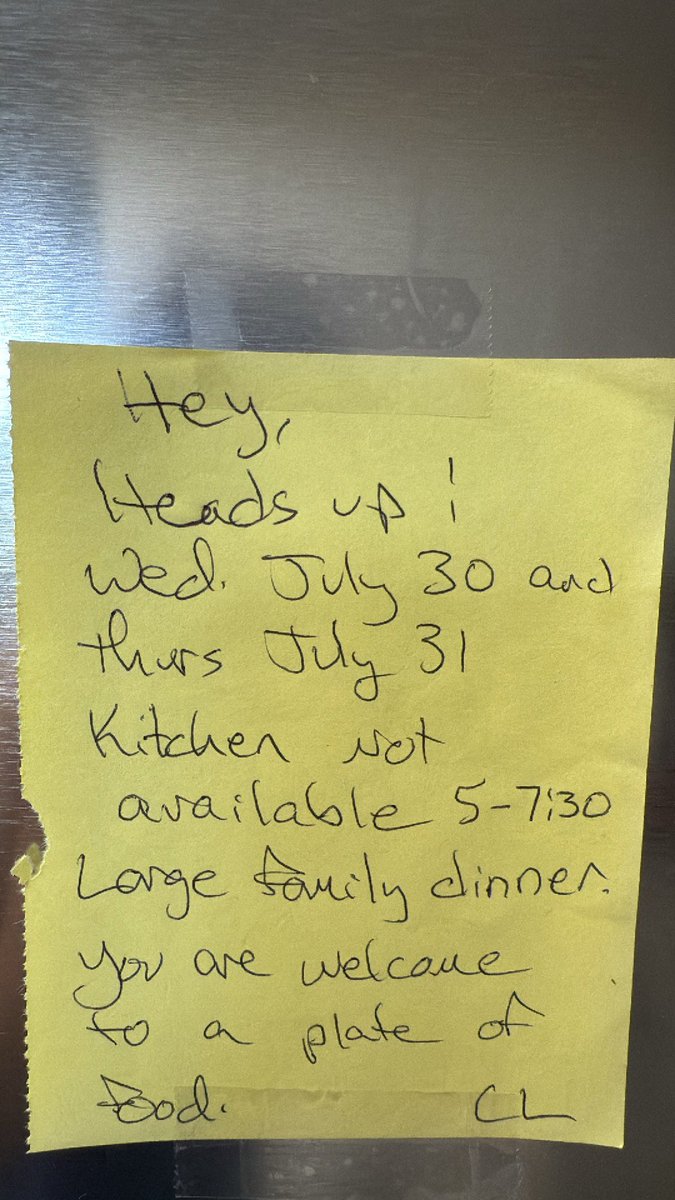 Hey,
Heads up!
Wed. July 30 and
thurs July 31
Kitchen not
available 5-7:30
Large family dinner.
you are welcome
to a plate of
food. CL